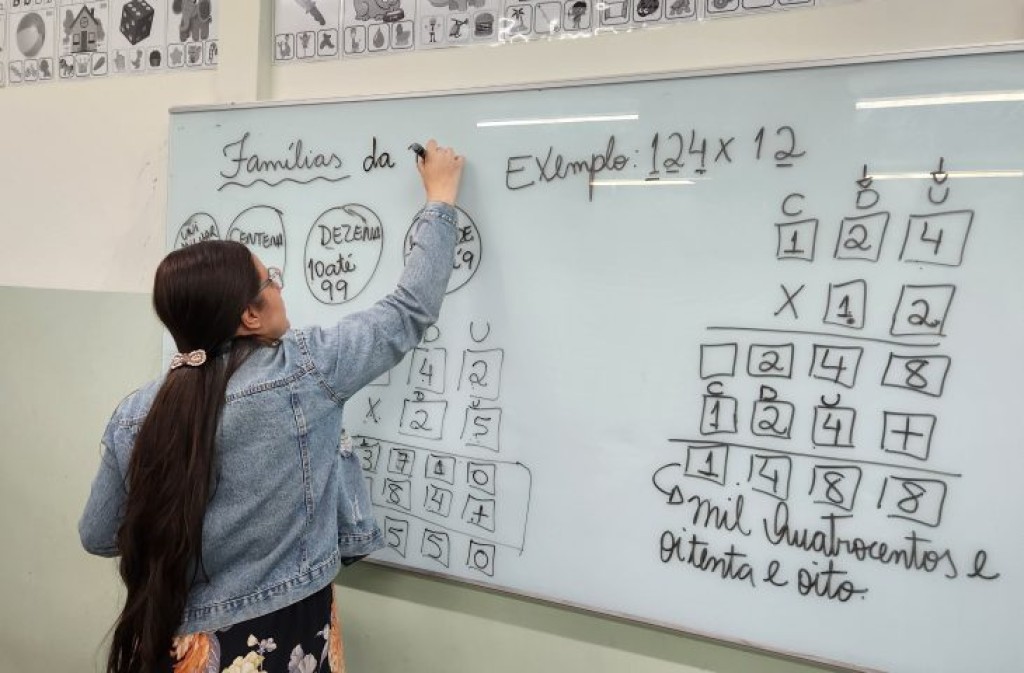 Famílias da
Exemplo: 124 x 12
DEZENA
10 até
99
C D U
1 2 4
X 1 2
2 4 8
C D U
1 2 4 +
1.488
mil quatrocentos e
oitenta e oito.
U
4 2
D U
X 2 5
3 7 1 0
8 4 +
5 5 0